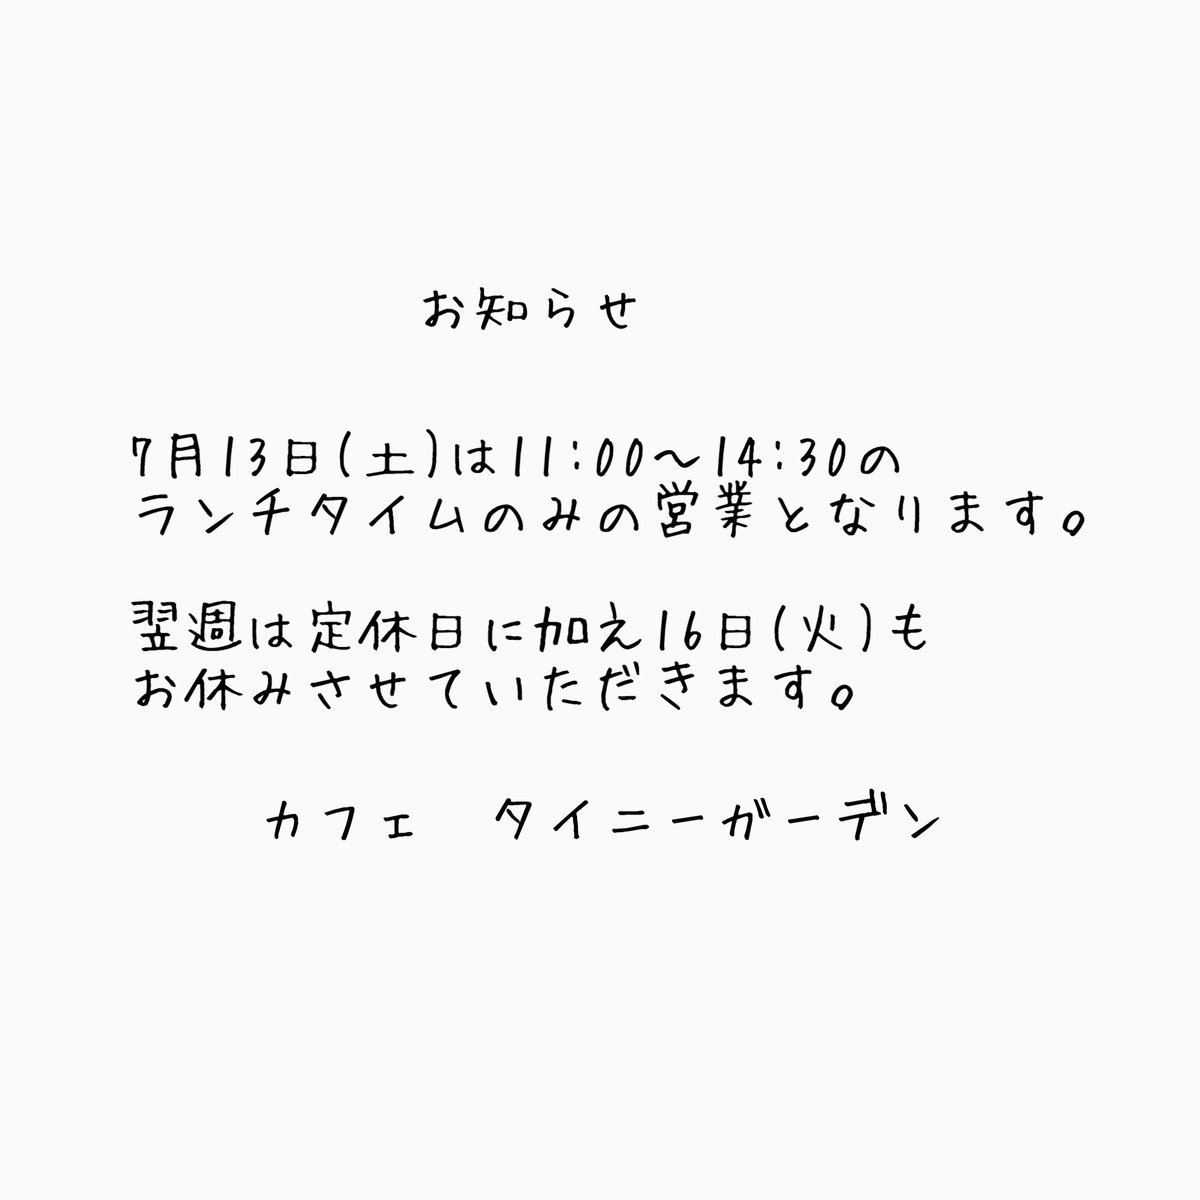 お知らせ
7月13日(土)は11:00〜14:30の
ランチタイムのみの営業となります。
翌週は定休日に加え16日(火)も
お休みさせていただきます。
カフェ　タイニーガーデン